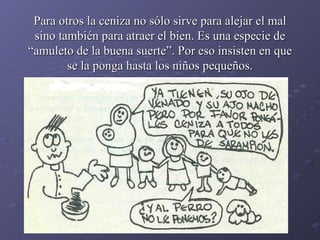 Para otros la ceniza no sólo sirve para alejar el mal
sino también para atraer el bien. Es una especie de
“amuleto de la buena suerte”. Por eso insisten en que
se la ponga hasta los niños pequeños.
YA TIENEN, SU OJO DE
VENADO Y SU AJO MACHO
PERO POR FAVOR PONGA-
LES CENIZA A TODOS
PARA QUE NO LES
DE SARAMPIÓN.
¿Y AL PERRO
NO LE PONEMOS?